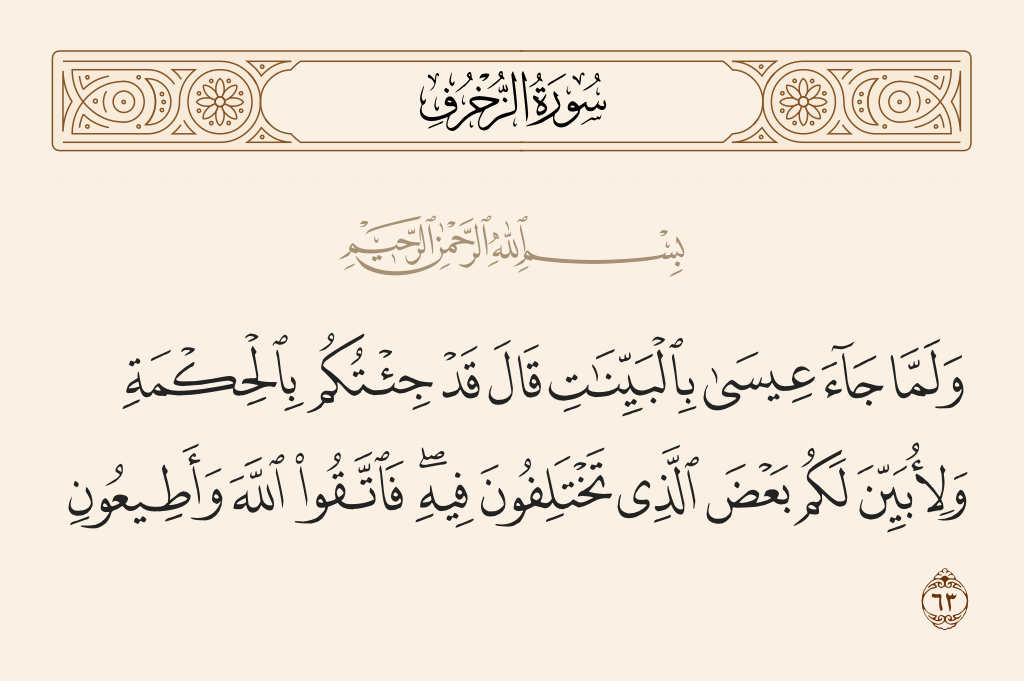 سُورَةُ الزُّخْرُفِ
بِسْمِ ٱللَّهِ ٱلرَّحْمَٰنِ ٱلرَّحِيمِ
وَلَمَّا جَآءَ عِيسَىٰ بِٱلْبَيِّنَٰتِ قَالَ قَدْ جِئْتُكُم بِٱلْحِكْمَةِ
وَلِأُبَيِّنَ لَكُم بَعْضَ ٱلَّذِى تَخْتَلِفُونَ فِيهِ ۖ فَٱتَّقُوا۟ ٱللَّهَ وَأَطِيعُونِ
٦٣